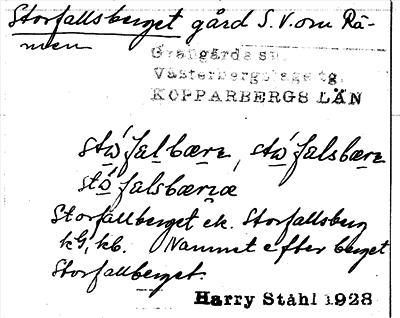 Storfallsberget gård S.V. om Rä-
men
Grangärde sn.
Västerbergslags tg.
KOPPARBERGS LÄN
stω´falbærə, stω´falsbærə
stó falsbærjæ
Storfallberget ek. Storfallsberg
kG, kb. Namnet efter berget
Storfallberget.
Harry Ståhl 1928